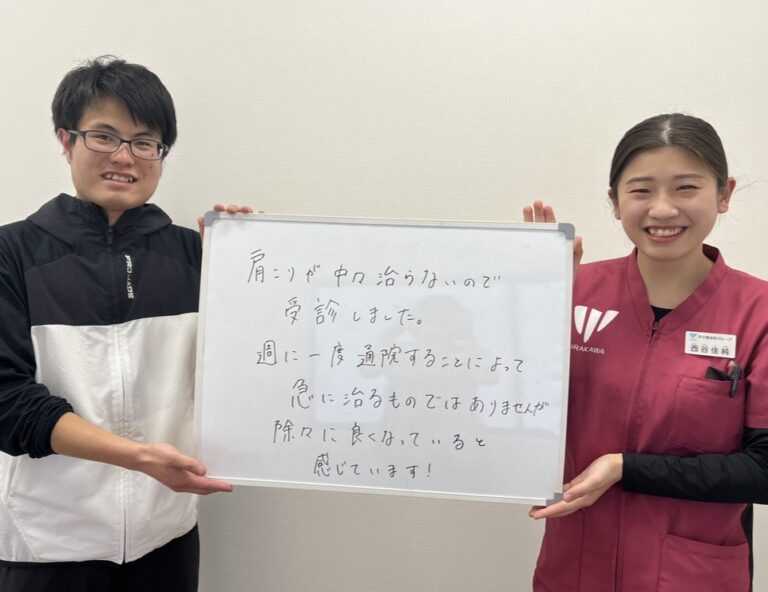 肩こりが中々治らないので
受診しました。
週に一度通院することによって
急に治るものではありませんが
除々に良くなっていると
感じています!
PROMADE
ARAKAWA
西谷佳純